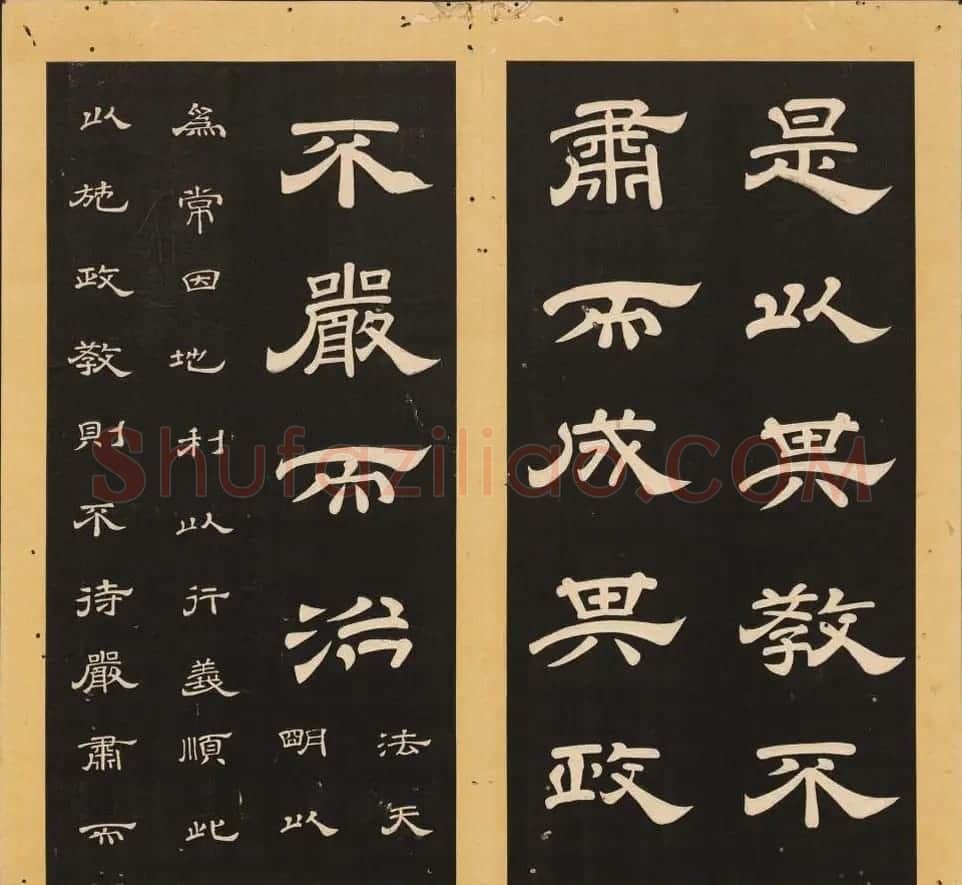 是以其教不
肅而成其政
不嚴而治
法天
明以
爲常因地利以行義順此
以施政教則不待嚴肅而
Shufaziliao.COM